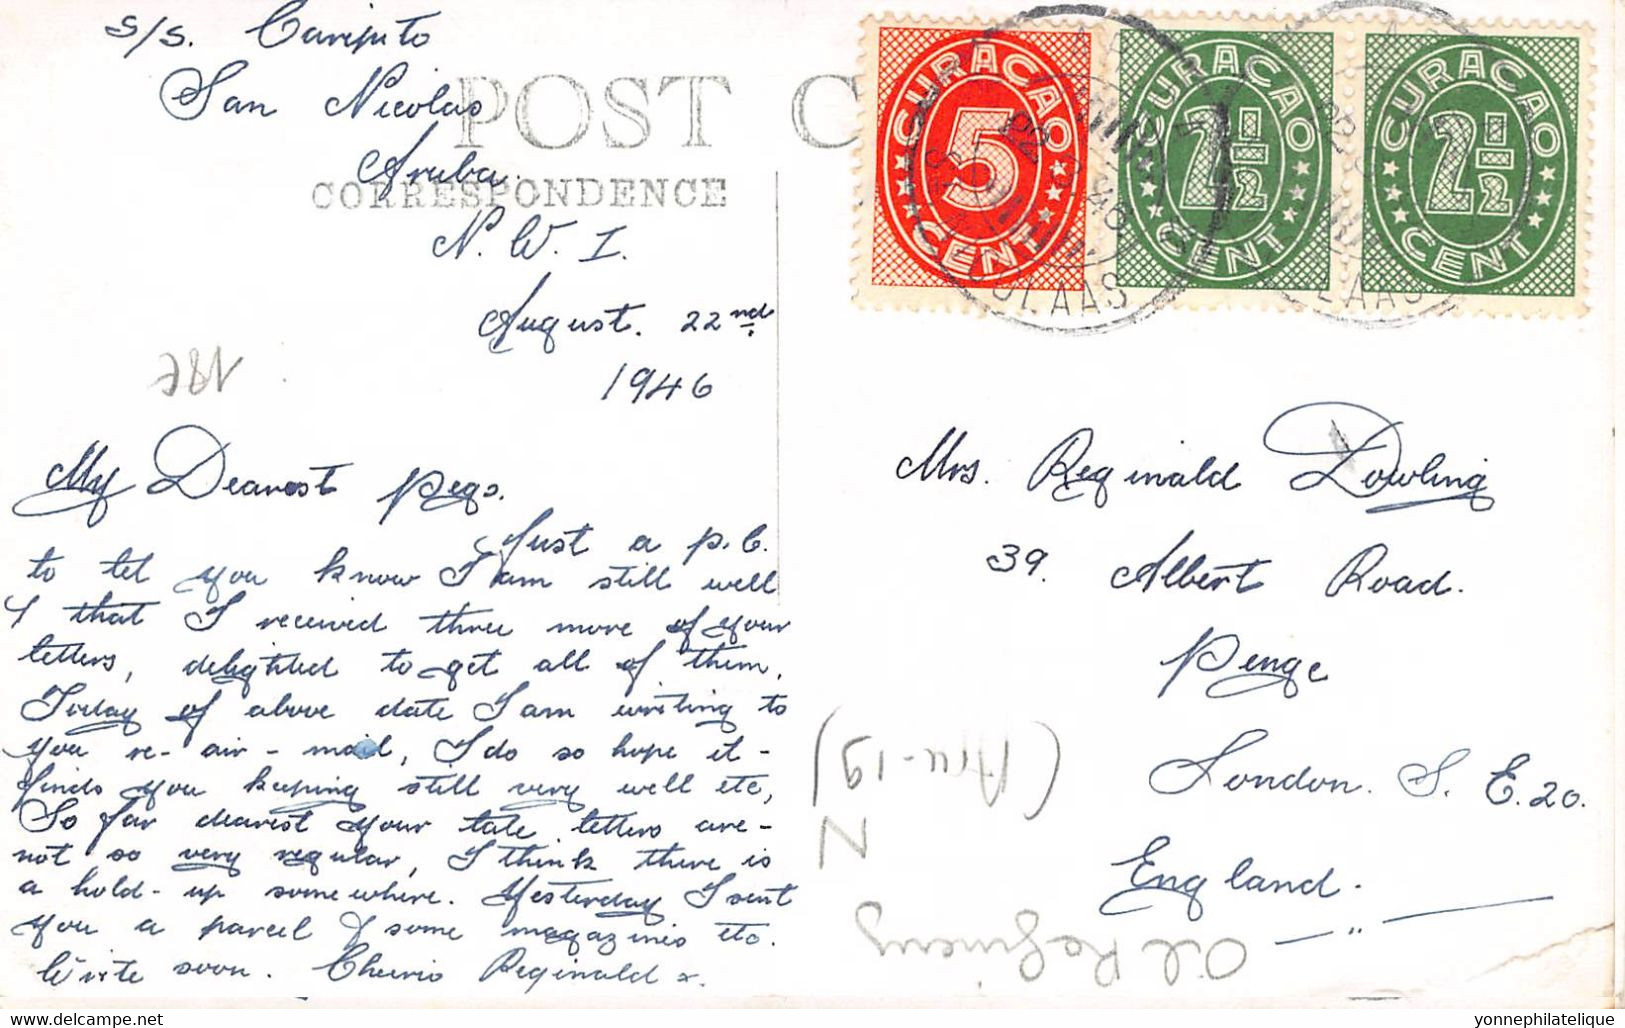 s/s. Caripito
San Nicolas
Aruba.
N. W. I.
August. 22nd.
1946
POST C
CORRESPONDENCE
My Dearest Pegs.
Just a p.c.
to let you know I am still well
& that I received three more of your
letters, delighted to get all of them,
Today of above date I am writing to
you re-air-mail, I do so hope it-
finds you keeping still very well etc,
So far dearest your late letters are-
not so very regular, I think there is
a hold-up somewhere. Yesterday I sent
you a parcel & some magazines etc.
Write soon. Cheerio Reginald x.
CURACAO 5 CENT
CURACAO 2 1/2 CENT
CURACAO 2 1/2 CENT
Mrs. Reginald Dowling
39. Albert Road.
Penge
London. S. E. 20.
England.
(Aru-19)
N
Oil Refinery
yonnephilatelique